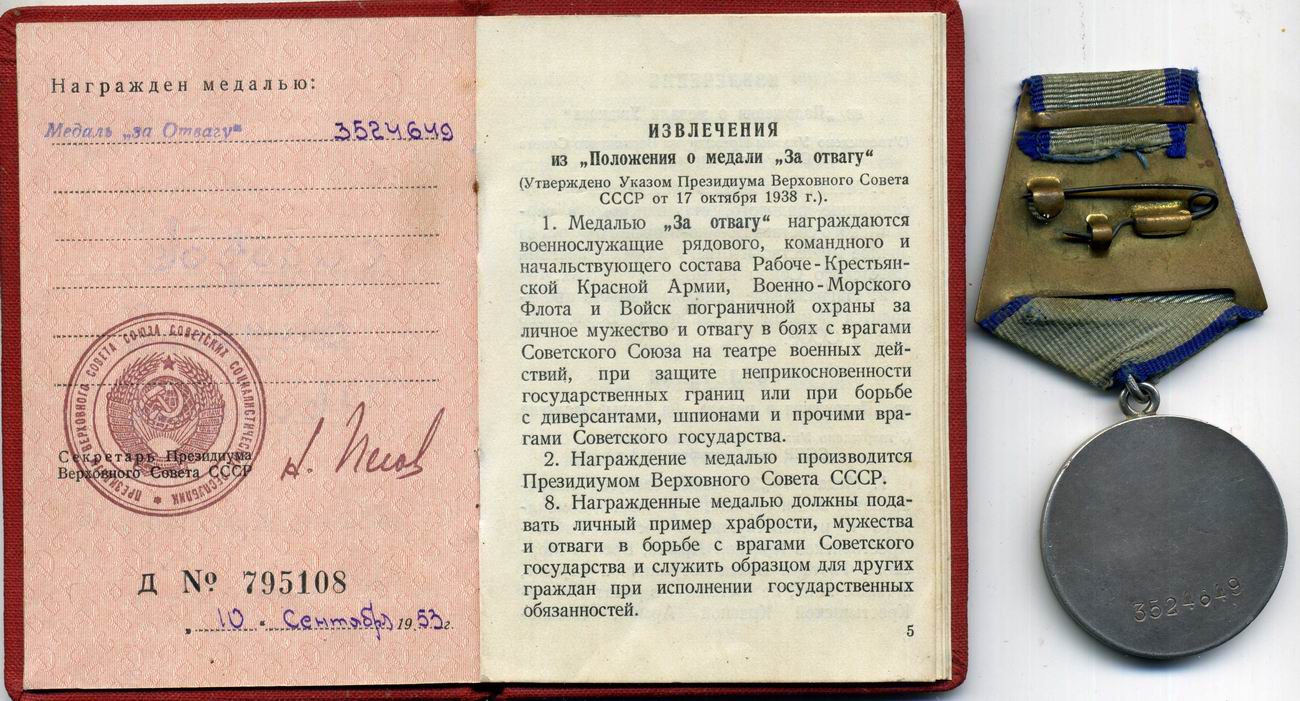 Награжден медалью:
Медаль „за Отвагу“ 3524649
ПРЕЗИДИУМ ВЕРХОВНОГО СОВЕТА СОЮЗА СОВЕТСКИХ СОЦИАЛИСТИЧЕСКИХ РЕСПУБЛИК
Секретарь Президиума
Верховного Совета СССР
Д № 795108
„10“ Сентября 1953г.
ИЗВЛЕЧЕНИЯ
из „Положения о медали „За отвагу“
(Утверждено Указом Президиума Верховного Совета
СССР от 17 октября 1938 г.).
1. Медалью „За отвагу“ награждаются
военнослужащие рядового, командного и
начальствующего состава Рабоче-Крестьян-
ской Красной Армии, Военно-Морского
Флота и Войск пограничной охраны за
личное мужество и отвагу в боях с врагами
Советского Союза на театре военных дей-
ствий, при защите неприкосновенности
государственных границ или при борьбе
с диверсантами, шпионами и прочими вра-
гами Советского государства.
2. Награждение медалью производится
Президиумом Верховного Совета СССР.
8. Награжденные медалью должны пода-
вать личный пример храбрости, мужества
и отваги в борьбе с врагами Советского
государства и служить образцом для других
граждан при исполнении государственных
обязанностей.
5
3524649